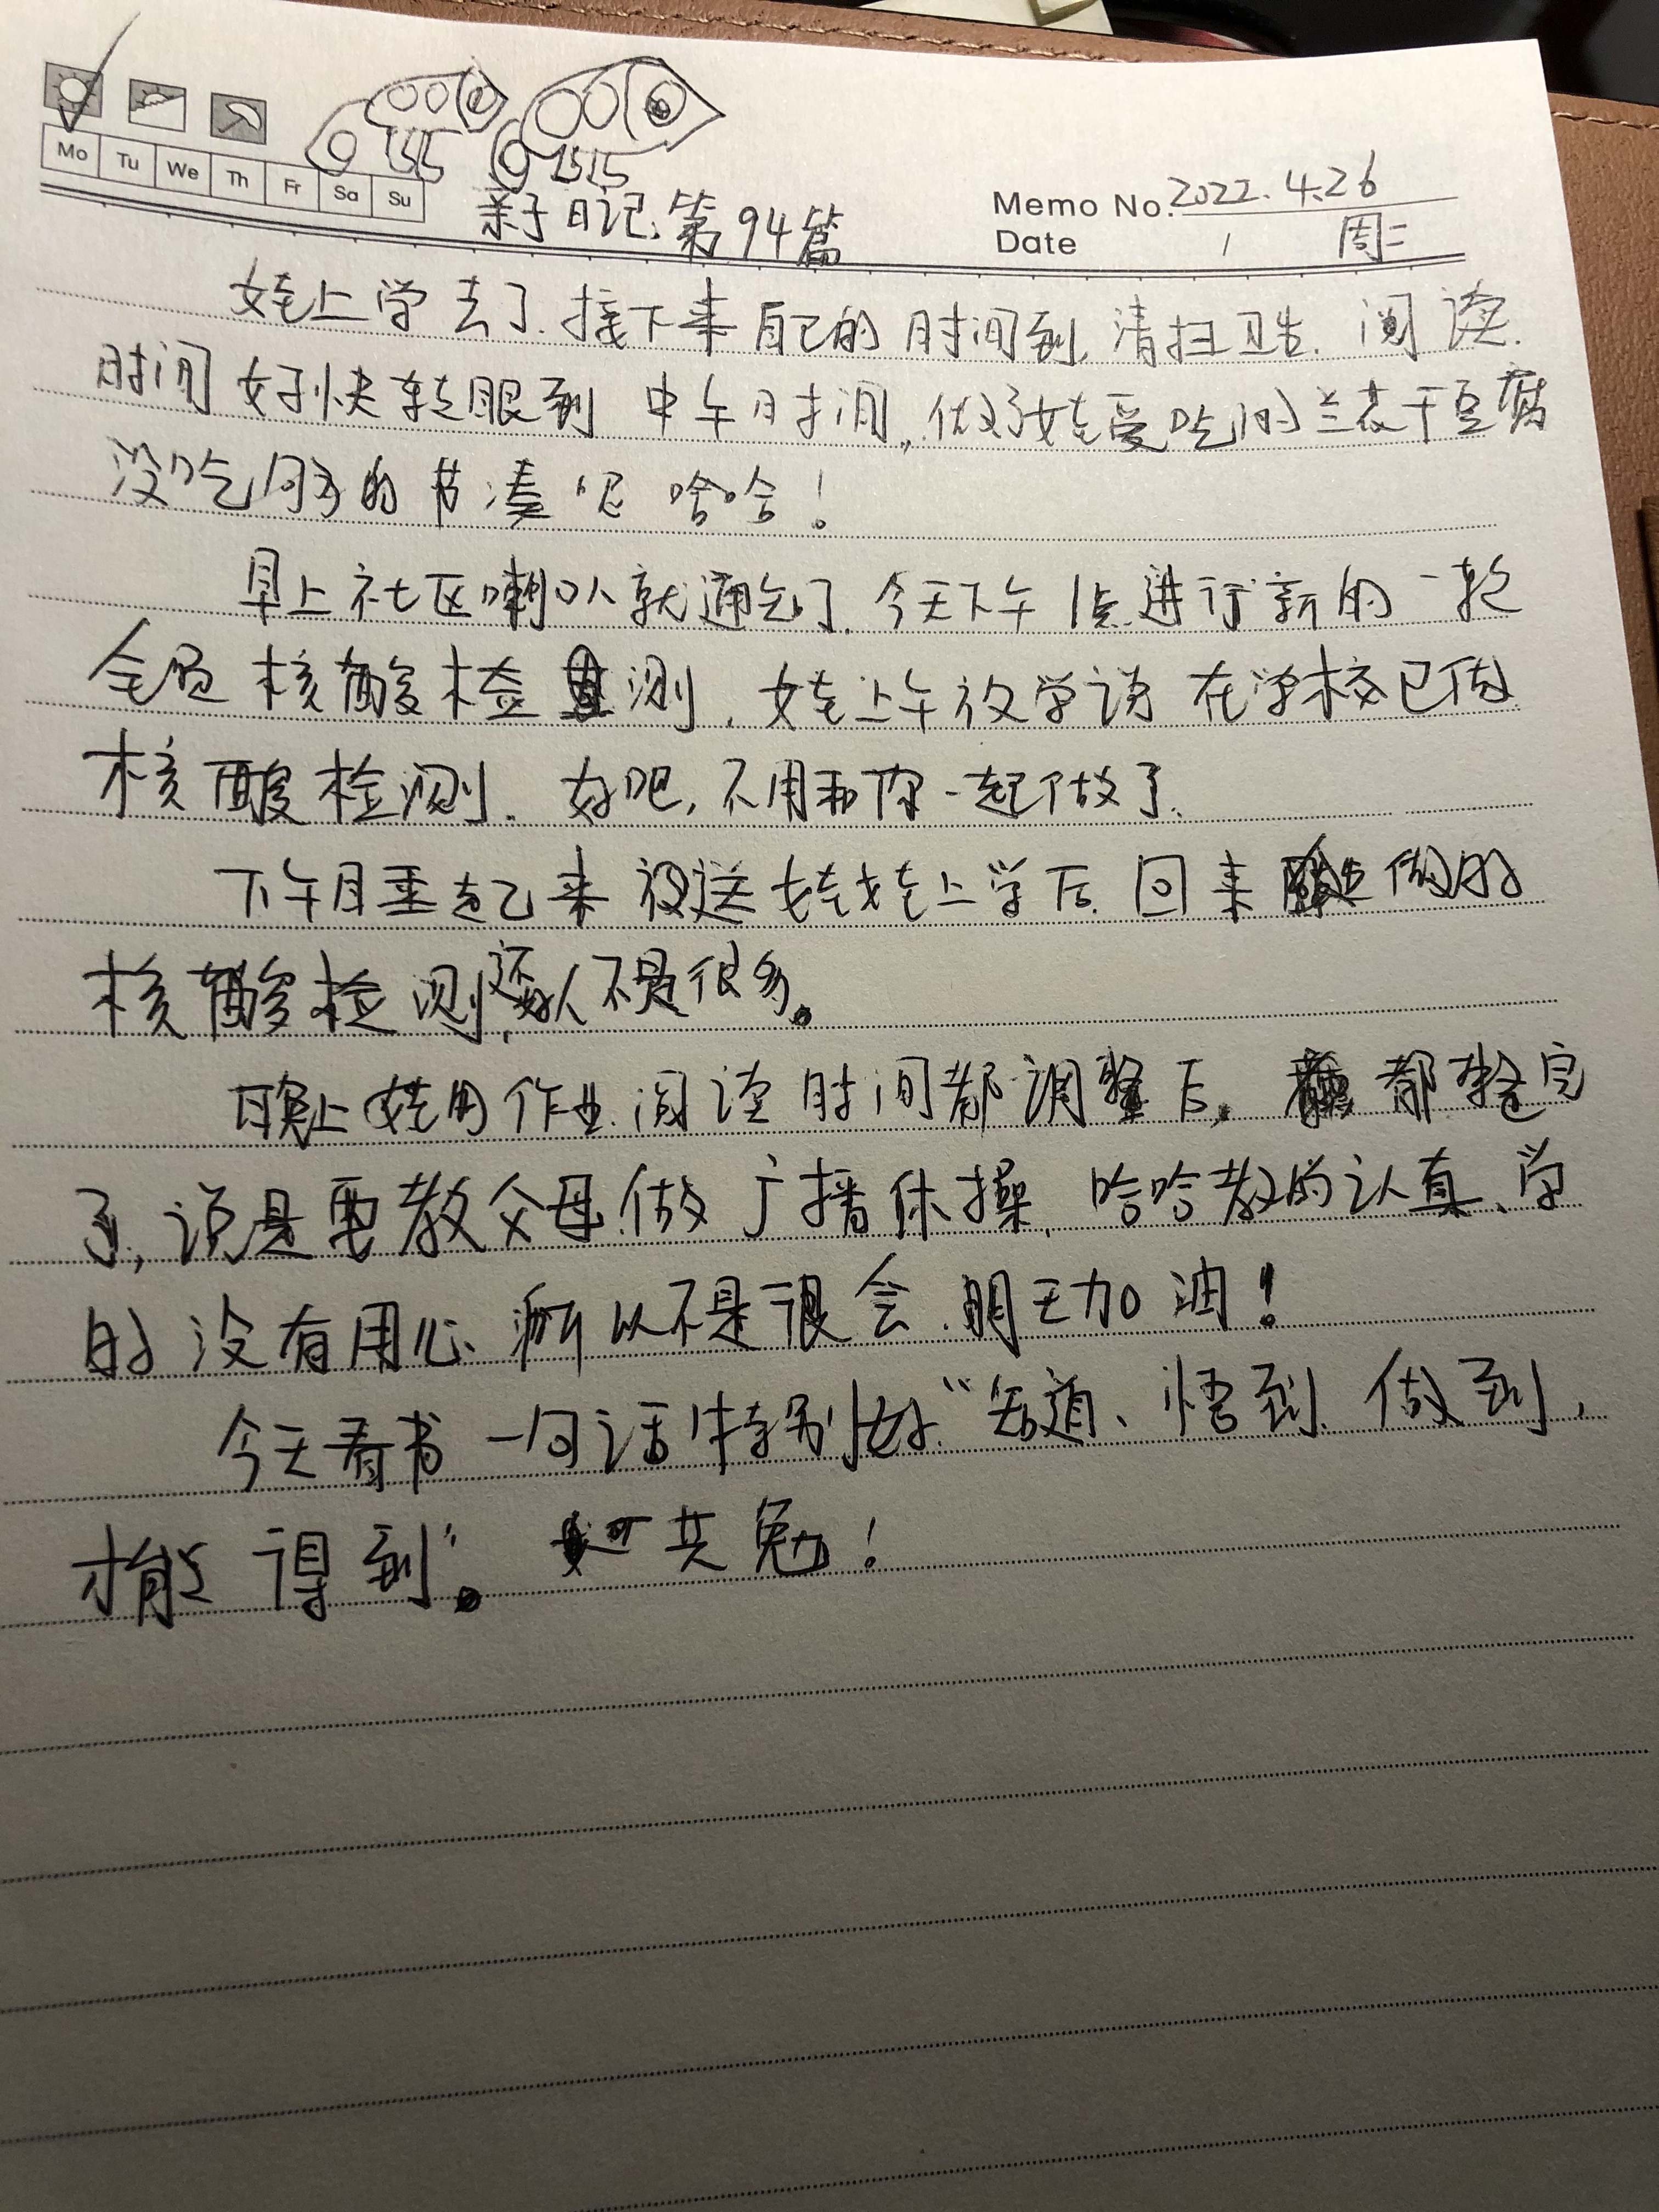 Mo Tu We Th Fr Sa Su
Memo No. 2022.4.26
Date / 周二
亲子日记:第94篇
娃上学去了.接下来自己的时间到,清扫卫生.阅读.
时间好快转眼到中午时间,做了娃爱吃的兰花干豆腐
没吃够的节凑呢哈哈!
早上社区喇叭就通知了.今天下午1点进行新的一轮
全员核酸检测,娃上午放学说在学校已做
核酸检测.好吧,不用和你一起做了.
下午睡起来没送娃娃上学后.回来做的
核酸检测,还好人不是很多。
晚上娃的作业.阅读时间都调整后,都整完
了,说是要教父母做广播体操,哈哈教的认真、学
的没有用心、所以不是很会.明天加油!
今天看书一句话特别好“知道、悟到、做到,
才能得到”。共勉!